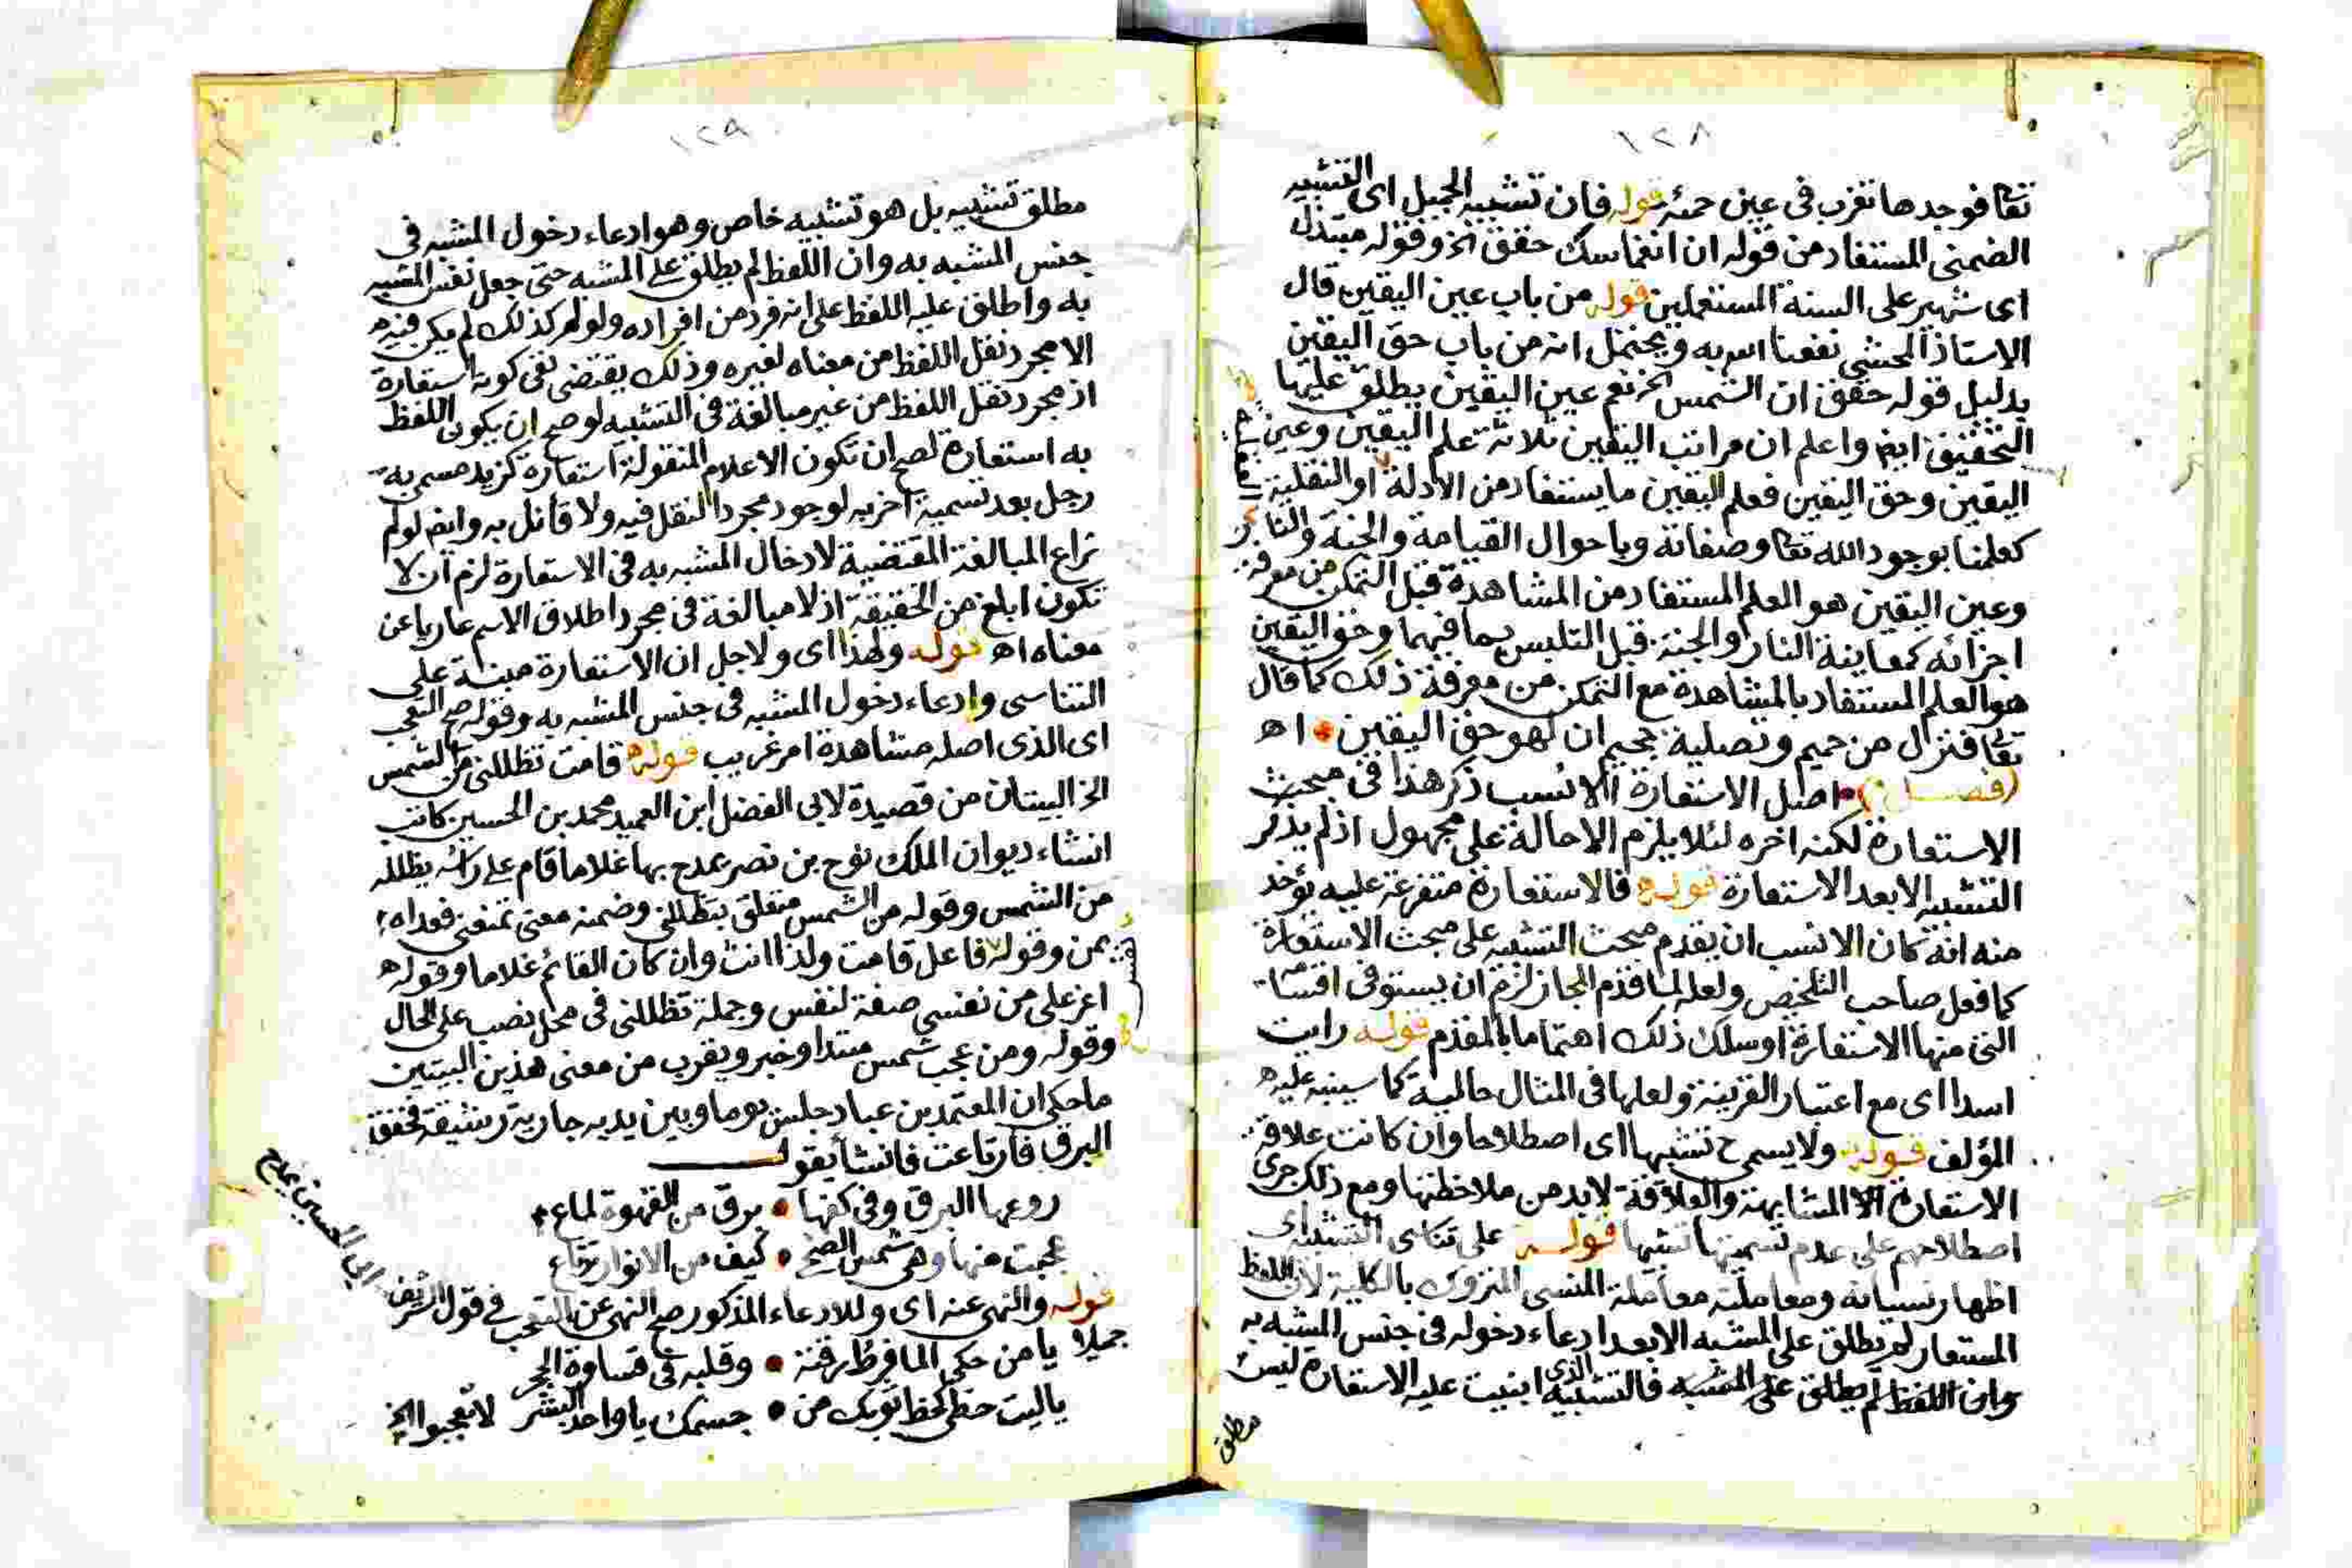 ١٢٨
تعا فوجدها تغرب في عين حمئة قوله فان تشبيه الجميل اى التشبيه
الضمنى المستفاد من قوله ان انغماسك حقق الخ وقوله مبتذل
اى شهير على السنة المستعملين قوله من باب عين اليقين قال
الاستاذ المحشى نفعنا الله به ويحتمل انه من باب حق اليقين
بدليل قوله حقق ان الشمس الخ نعم عين اليقين يطلق عليها
التحقيق ايضا واعلم ان مراتب اليقين ثلاثة علم اليقين وعين
اليقين وحق اليقين فعلم اليقين ما يستفاد من الادلة او النقلية
العقلية
كعلمنا بوجود الله تعا وصفاته وباحوال القيامة والجنة والنار
وعين اليقين هو العلم المستفاد من المشاهدة قبل التمكن من معرفة
اجزائه كمعاينة النار والجنة قبل التلبس بما فيهما وحق اليقين
هو العلم المستفاد بالمشاهدة مع التمكن من معرفة ذلك كما قال
تعا فنزل من حميم وتصلية جحيم ان لهو حق اليقين اه
(فصل) اصل الاستعارة الانسب ذكر هذا في مبحث
الاستعارة لكنه اخره لئلا يلزم الاحالة على مجهول اذ لم يذكر
التشبيه الا بعد الاستعارة قوله فالاستعارة متفرعة عليه يؤخذ
منه انه كان الانسب ان يقدم مبحث التشبيه على مبحث الاستعارة
كما فعل صاحب التلخيص ولعله لما قدم المجاز لزم ان يستوفى اقسامه
التى منها الاستعارة او سلك ذلك اهتماما بالمقدم قوله رايت
اسدا اى مع اعتبار القرينة ولعلها في المثال حالية كما سينبه عليه
المؤلف قوله ولا يسمى ح تشبيها اى اصطلاحا وان كانت علاقة
الاستعارة الا المشابهة والعلاقة لابد من ملاحظتها ومع ذلك جرى
اصطلاحهم على عدم تسميتها تشبيها قوله على تناسى التشبيه اى
اظهار نسيانه ومعاملته معاملة المنسى المتروك بالكلية لان اللفظ
المستعار لم يطلق على المشبه الا بعد ادعاء دخوله في جنس المشبه به
وان اللفظ لم يطلق على المشبه فالتشبيه الذى ابنيت عليه الاستعارة ليس
مطلق
١٢٩
مطلق تشبيه بل هو تشبيه خاص وهو ادعاء دخول المشبه في
جنس المشبه به وان اللفظ لم يطلق على المشبه حتى جعل نفس المشبه
به واطلق عليه اللفظ على انه فرد من افراده ولو لم كذلك لم يكن فيه
الا مجرد نقل اللفظ من معناه لغيره وذلك يقتضى نفى كونه استعارة
اذ مجرد نقل اللفظ من غير مبالغة في التشبيه لو صح ان يكون اللفظ
به استعارة لصح ان تكون الاعلام المنقولة استعارة كزيد مسمى به
رجل بعد تسمية اخر به لوجود مجرد النقل فيه ولا قائل به وايضا لو لم
تراع المبالغة المقتضية لادخال المشبه به في الاستعارة لزم ان لا
تكون ابلغ من الحقيقة اذ لا مبالغة في مجرد اطلاق الاسم عاريا عن
معناه اه قوله ولهذا اى ولاجل ان الاستعارة مبنية على
التناسى وادعاء دخول المشبه في جنس المشبه به وقوله صح التعجب
اى الذى اصله مشاهدة امر غريب قوله قامت تظللنى من الشمس
الخ البيتان من قصيدة لابى الفضل ابن العميد محمد بن الحسين كاتب
انشاء ديوان الملك نوح بن نصر يمدح بها غلاما قام على راسه يظلله
من الشمس وقوله من الشمس متعلق بتظللنى وضمنه معنى تمنعنى فعداه
بمن وقوله فاعل قامت ولذا انث وان كان القائم غلاما وقوله
نفس
اعز على من نفسى صفة لنفس وجملة تظللنى في محل نصب على الحال
وقوله ومن عجب شمس مبتدا وخبر ويقرب من معنى هذين البيتين
ما حكى ان المعتمد بن عباد جلس يوما وبين يديه جارية رشيقة فخفق
البرق فارتاعت فانشأ يقول
روعها البرق وفي كفها • برق من القهوة لماع
عجبت منها وهى شمس الضحى • كيف من الانوار ترتاع
قوله والنهى عنه اى وللادعاء المذكور صح النهى عن التعجب في قول الشريف
ابي الحسين يمدح
جميلا يا من حكى الما فرط رقته • وقلبه في قساوة الحجر
ياليت حظى كحظ ثوبك من • جسمك يا واحد البشر لا تعجبوا الخ